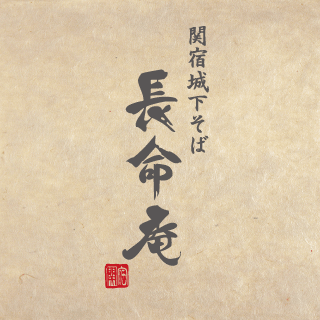 関宿城下そば
長命庵